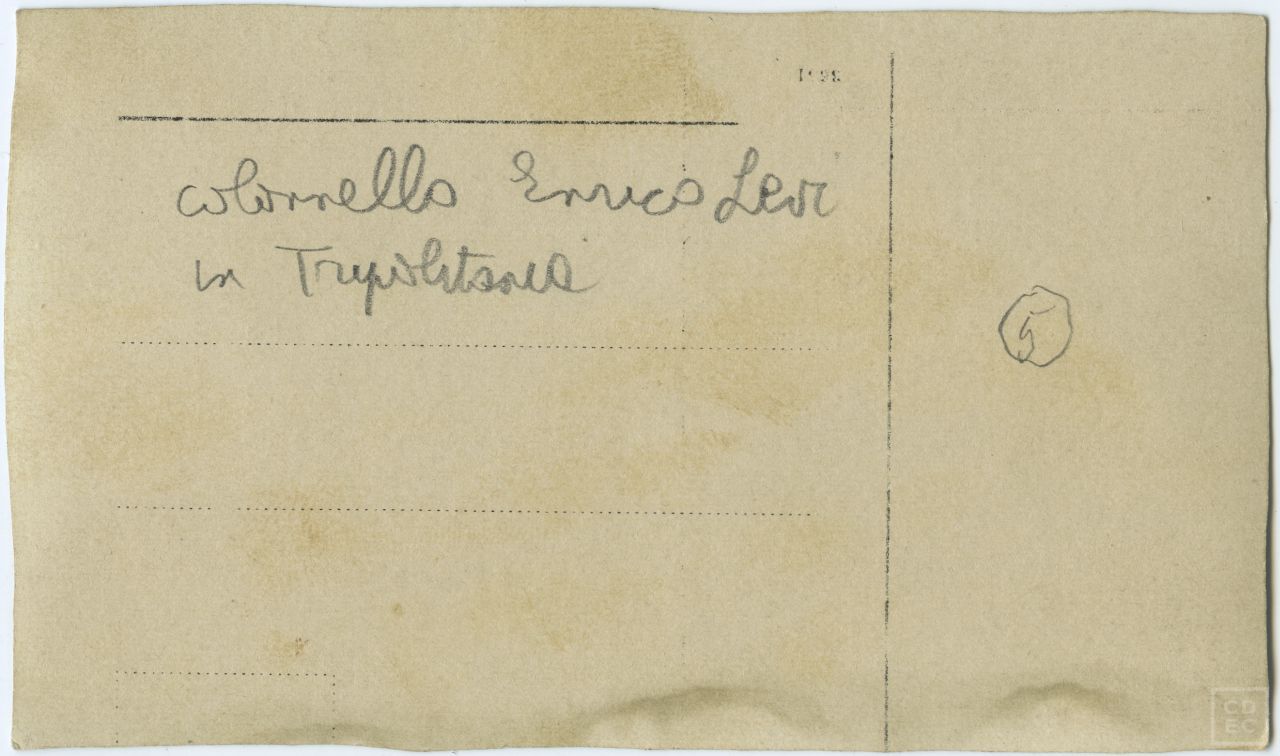 colonnello Enrico Levi
in Tripolitania
5
CD
EC